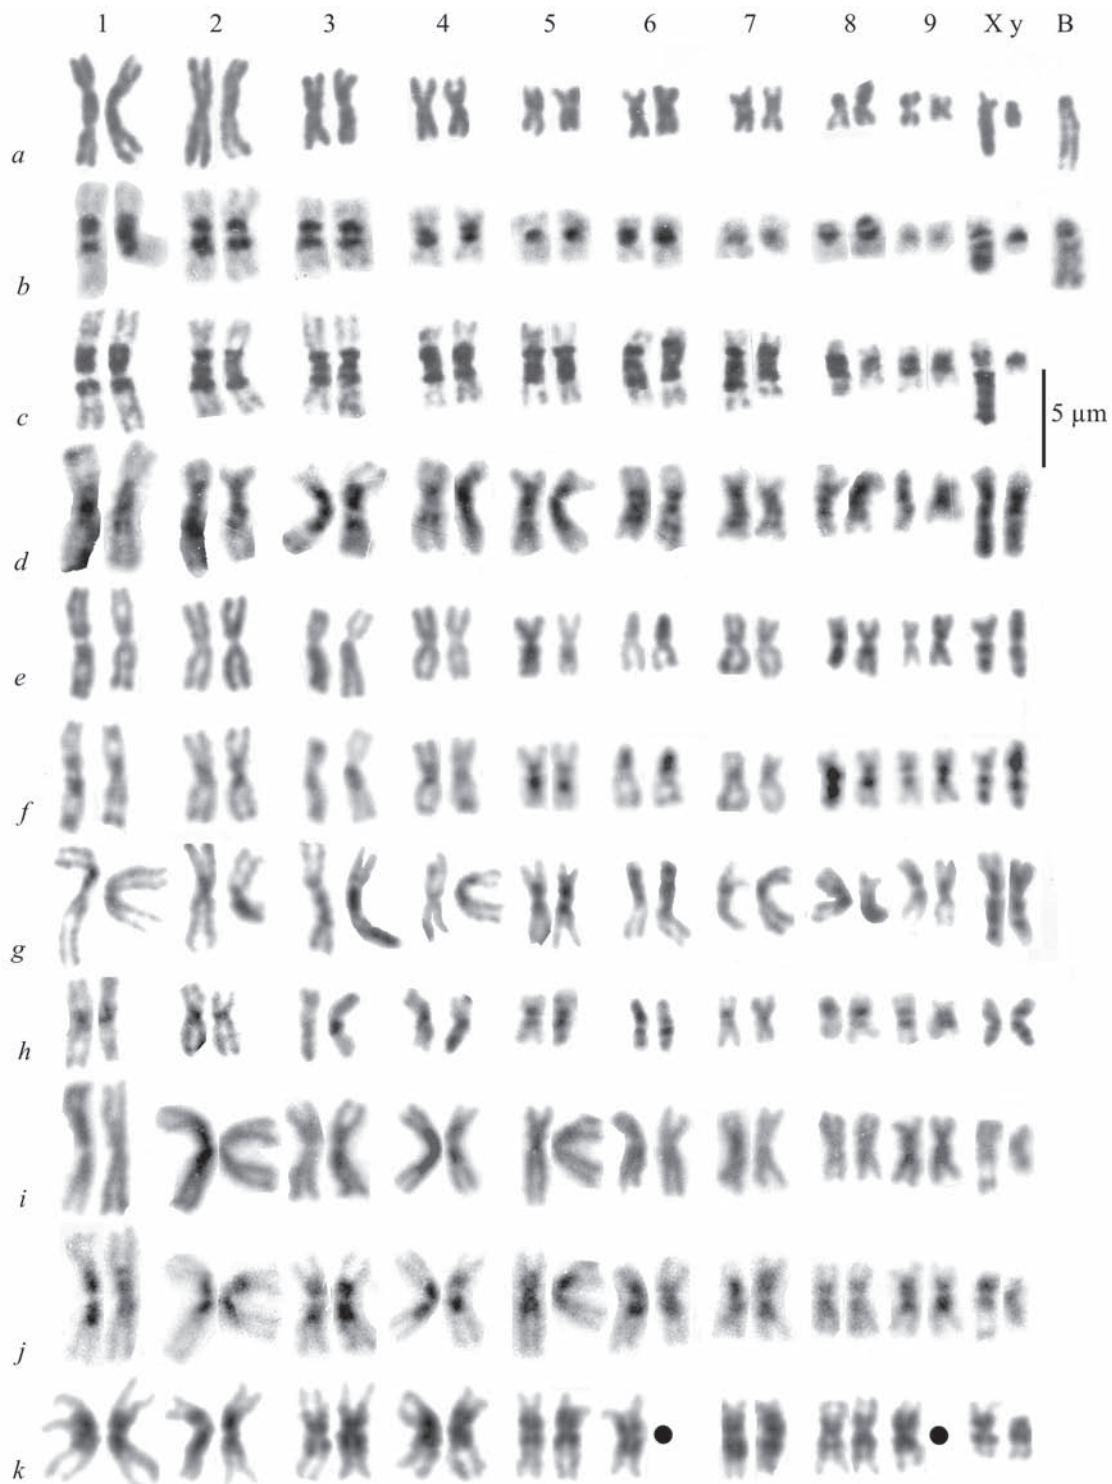 1 2 3 4 5 6 7 8 9 X y B
a
b
c
5 µm
d
e
f
g
h
i
j
k